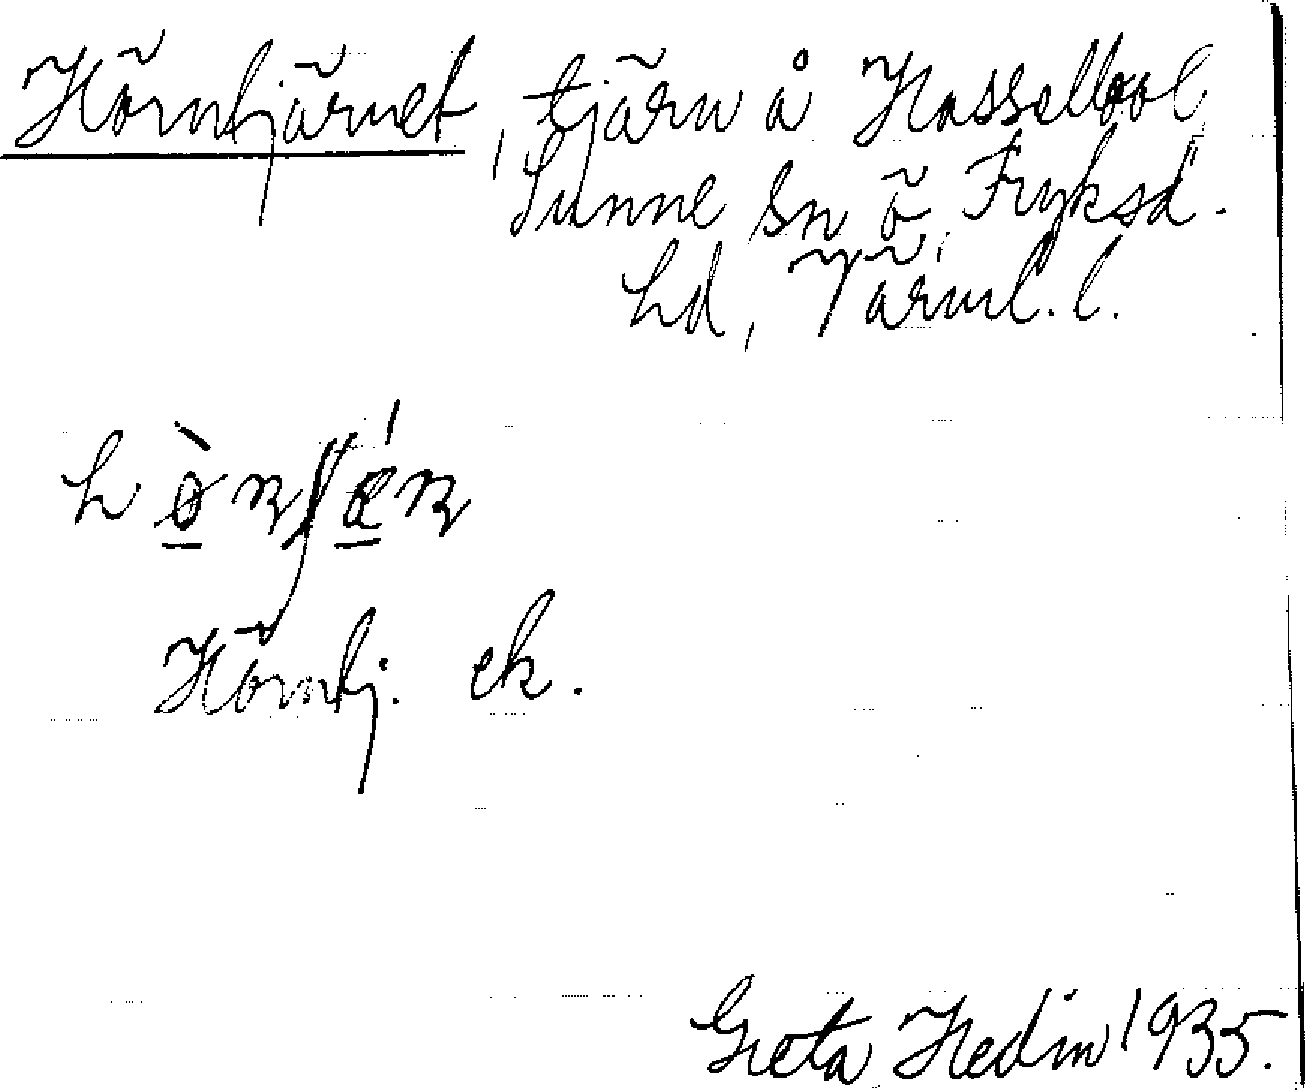 Hörntjärnet, tjärn å Hasselbol
Sunne sn Ö. Fryksd.
hd, Värml. l.
hö̀rnʃǽn
Hörntj. ek.
Greta Hedin 1935.